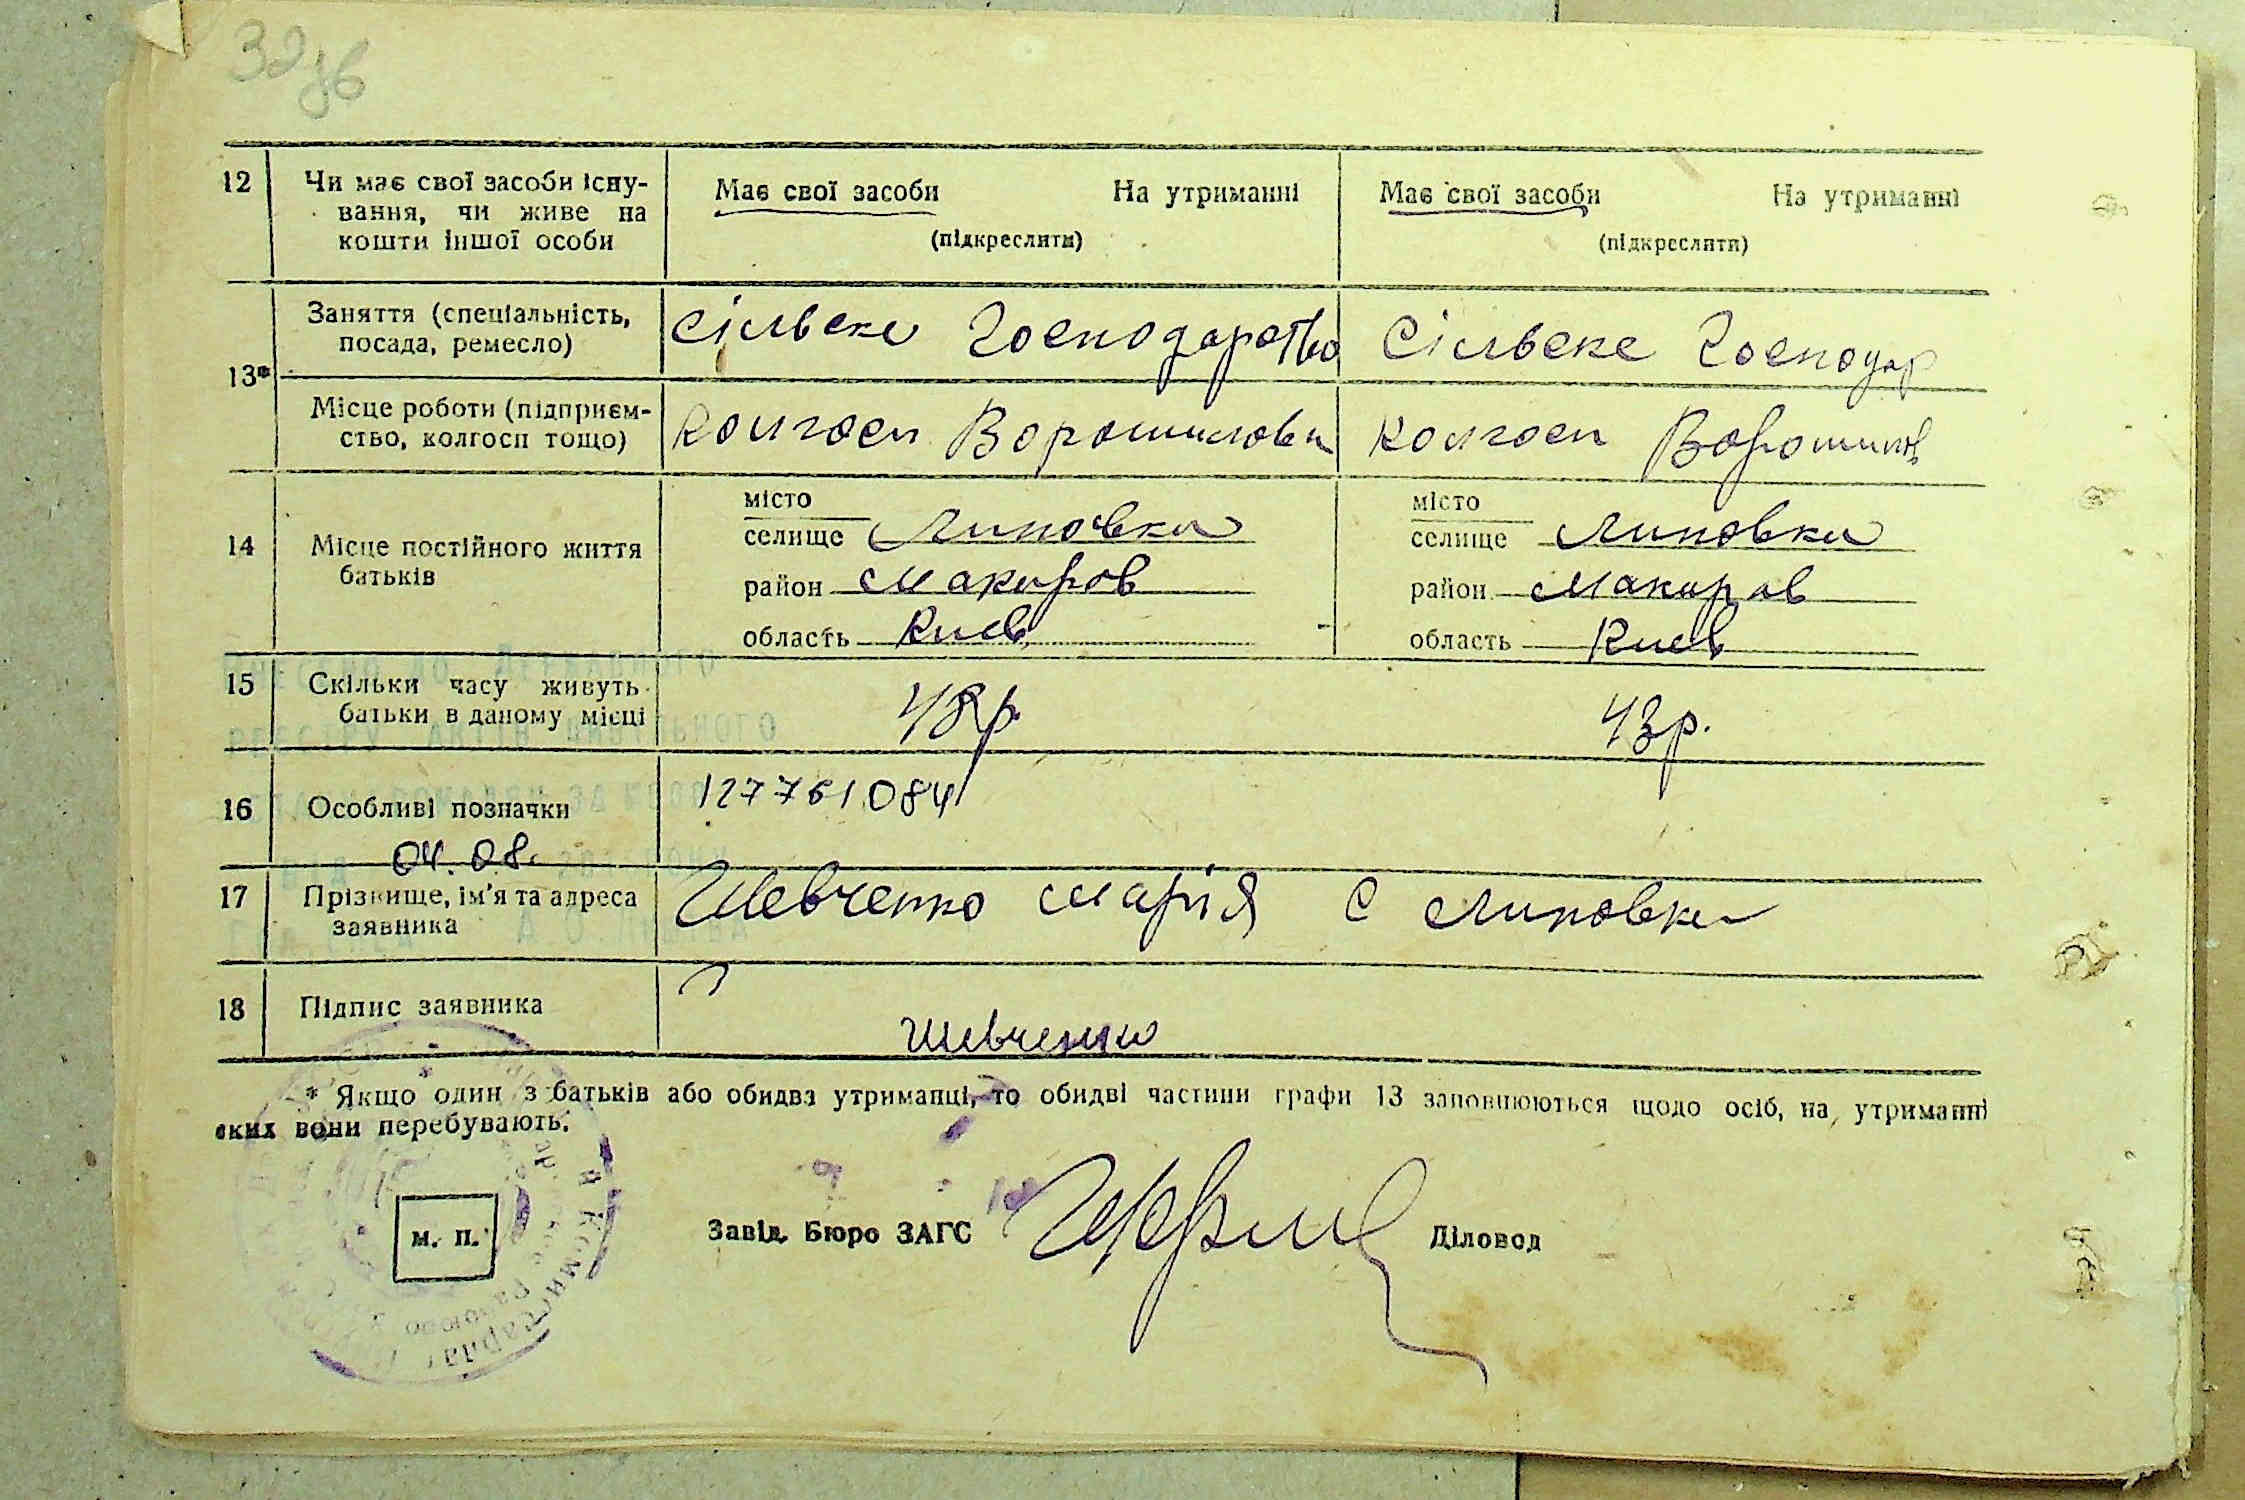 32 зв
12 Чи має свої засоби існу- Має свої засоби На утриманні Має свої засоби На утриманні
вання, чи живе на
кошти іншої особи (підкреслити) (підкреслити)
13* Заняття (спеціальність, Сільске Господарство Сільске Господар
посада, ремесло)
Місце роботи (підприєм- Колгосп Ворошилова Колгосп Ворошилов
ство, колгосп тощо)
14 Місце постійного життя
батьків
місто місто
селище Липовка селище Липовка
район Макаров район Макаров
область Киев область Киев
15 Скільки часу живуть 48р 43р.
батьки в даному місці
16 Особливі позначки 127761084
04.08.
17 Прізвище, ім'я та адреса Шевченко Марія С Липовка
заявника
18 Підпис заявника Шевченко
* Якщо один з батьків або обидва утриманці, то обидві частини графи 13 заповнюються щодо осіб, на утриманні
яких вони перебувають.
м. п. Завід. Бюро ЗАГС Діловод